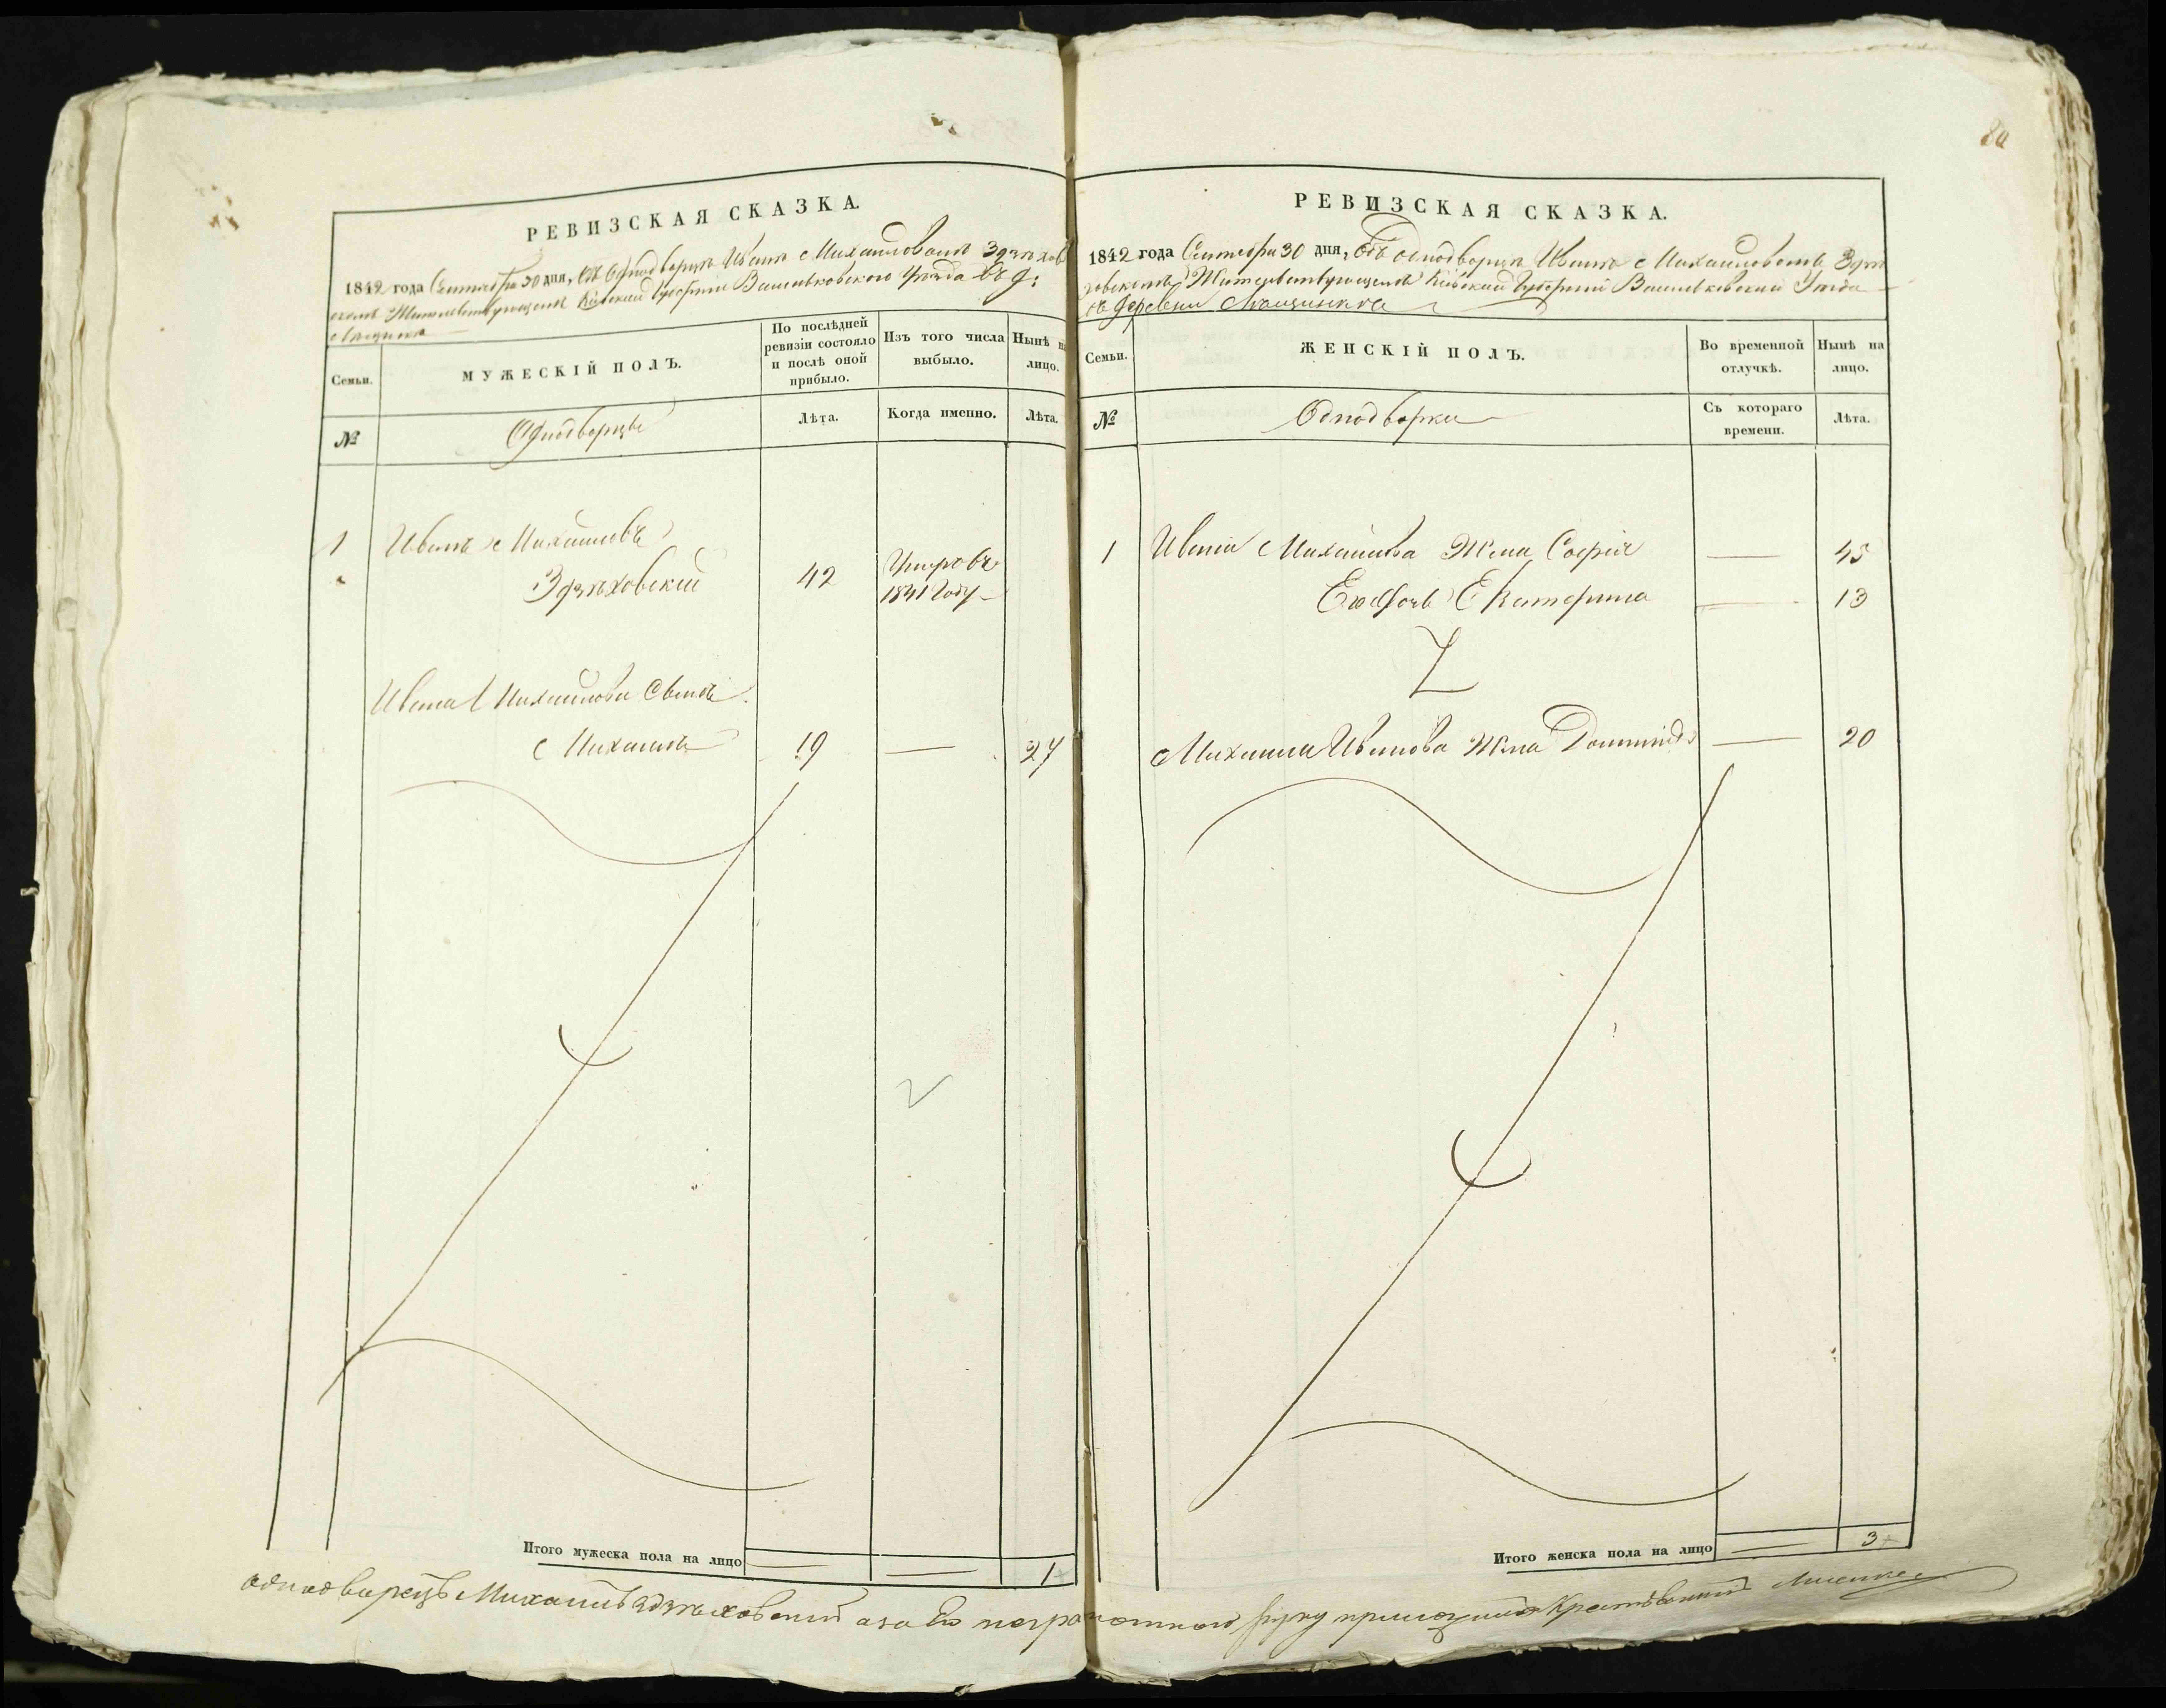 РЕВИЗСКАЯ СКАЗКА.
1842 года Сентября 30 дня, Отъ Однодворца Ивана Михайлова Здзѣхов
скаго Жительствующаго Кіевской Губерніи Васильковского Уѣзда въ д:
Семьи.
МУЖЕСКІЙ ПОЛЪ.
По послѣдней ревизіи состояло и послѣ оной прибыло.
Изъ того числа выбыло.
Нынѣ на лицо.
№
Однодворцы
Лѣта.
Когда именно.
Лѣта.
1 Иванъ Михайловъ
Здзѣховскій 42 Умеръ въ 1841 Году
Ивана Михайлова Сынъ
Михаилъ 19 — 27
Итого мужеска пола на лицо — — 1
84
РЕВИЗСКАЯ СКАЗКА.
1842 года Сентября 30 дня, Отъ Однодворца Ивана Михайлова Здзѣ
ховскаго Жительствующаго Кіевской Губерніи Васильковской Уѣзда
въ деревни
Семьи.
ЖЕНСКІЙ ПОЛЪ.
Во временной отлучкѣ.
Нынѣ на лицо.
№
Однодворки
Съ котораго времени.
Лѣта.
1 Ивана Михайлова Жена Софія — 45
Его Дочь Екатерина — 13
Михаила Иванова Жена — 20
Итого женска пола на лицо — 3
однодворецъ Михаилъ Здзѣховскій а за Его неграмотного руку приложилъ